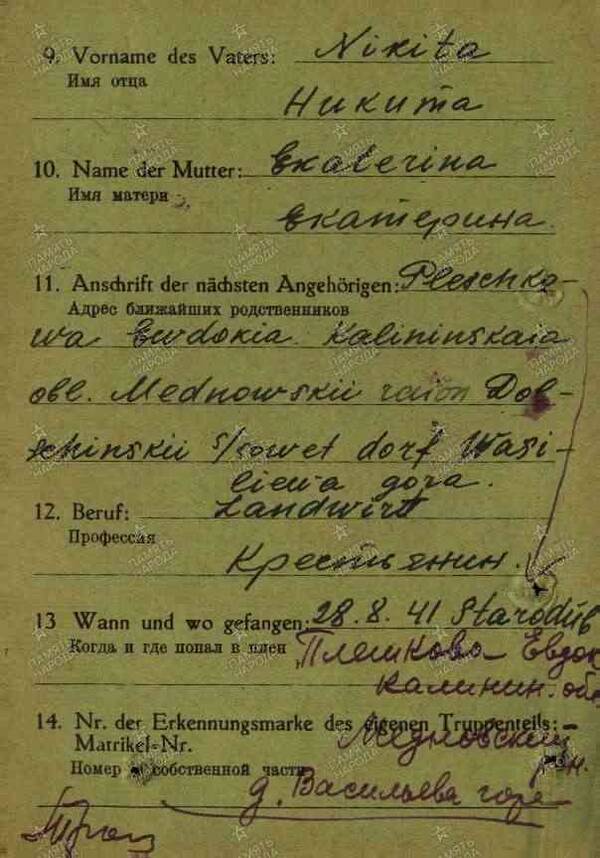 9. Vorname des Vaters: Nikita
Имя отца
Никита
10. Name der Mutter: Ekaterina
Имя матери
Екатерина.
11. Anschrift der nächsten Angehörigen: Pleschko-
Адрес ближайших родственников
wa Ewdokia. Kalininskaia
obl. Mednowskii raion Dob-
schinskii s/sowet dorf Wasi-
liewa gora.
12. Beruf: Landwirt
Профессия
Крестьянин.
13 Wann und wo gefangen: 28.8.41 Starodub
Когда и где попал в плен Плешкова Евдок
Калинин. обл
14. Nr. der Erkennungsmarke des eigenen Truppenteils: –
Matrikel-Nr. Медновский
Номер собственной части р-н.
д. Васильева горе
ПАМЯТЬ НАРОДА